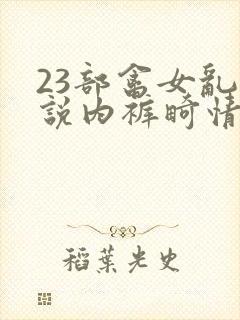 23部畲女乱
說内裤畸情
稻葉光史